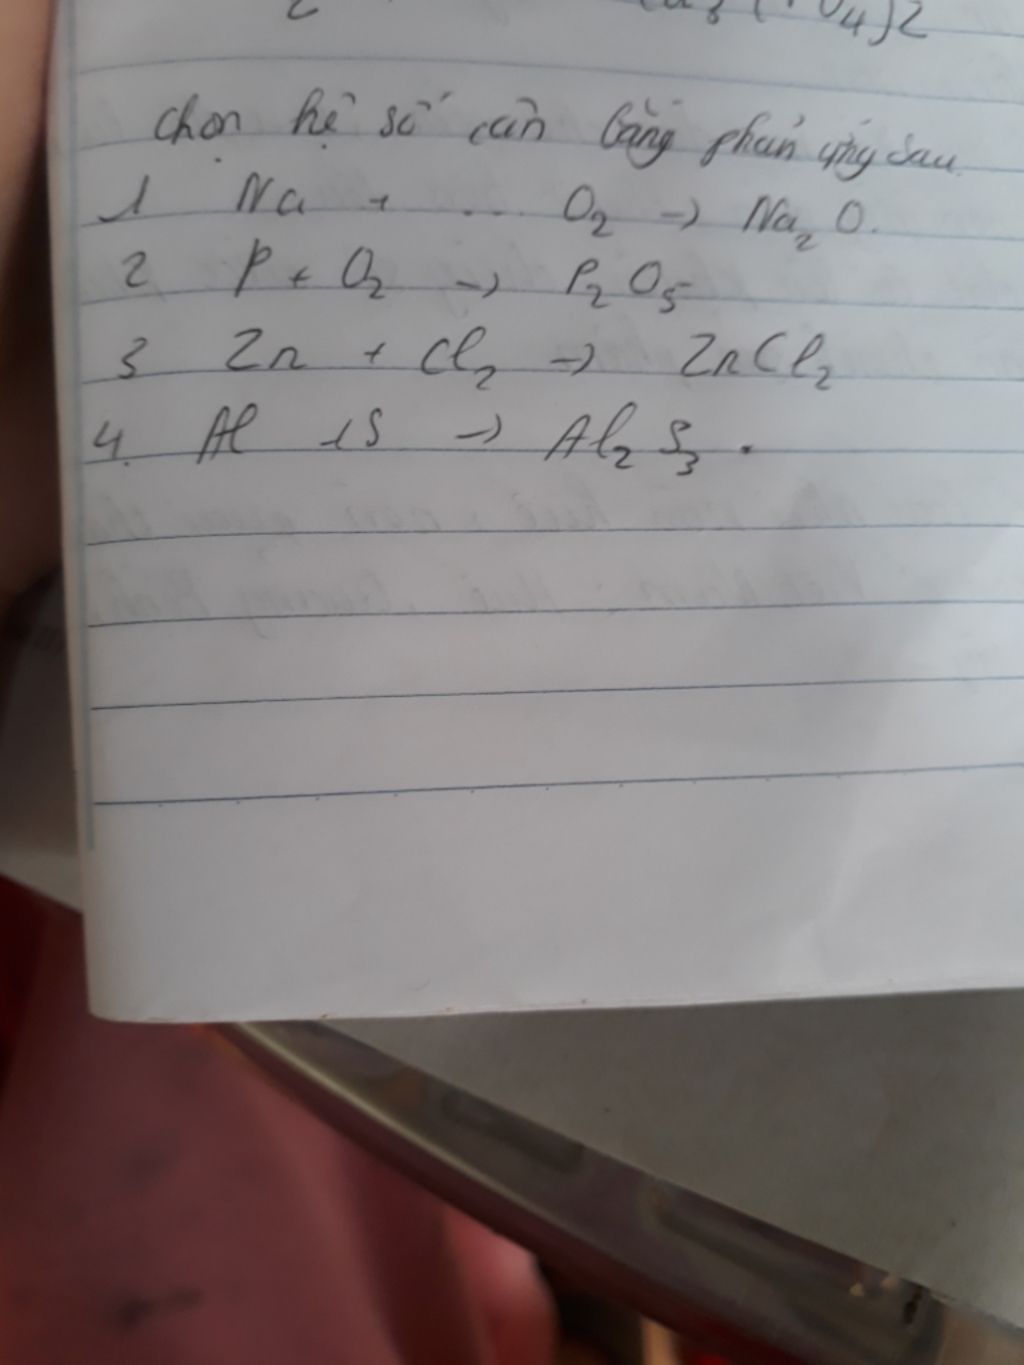 PO4)2
chọn hệ số cân bằng phản ứng sau
1 Na + ... O2 -> Na2O.
2 P + O2 -> P2O5
3 Zn + Cl2 -> ZnCl2
4. Al + S -> Al2S3.